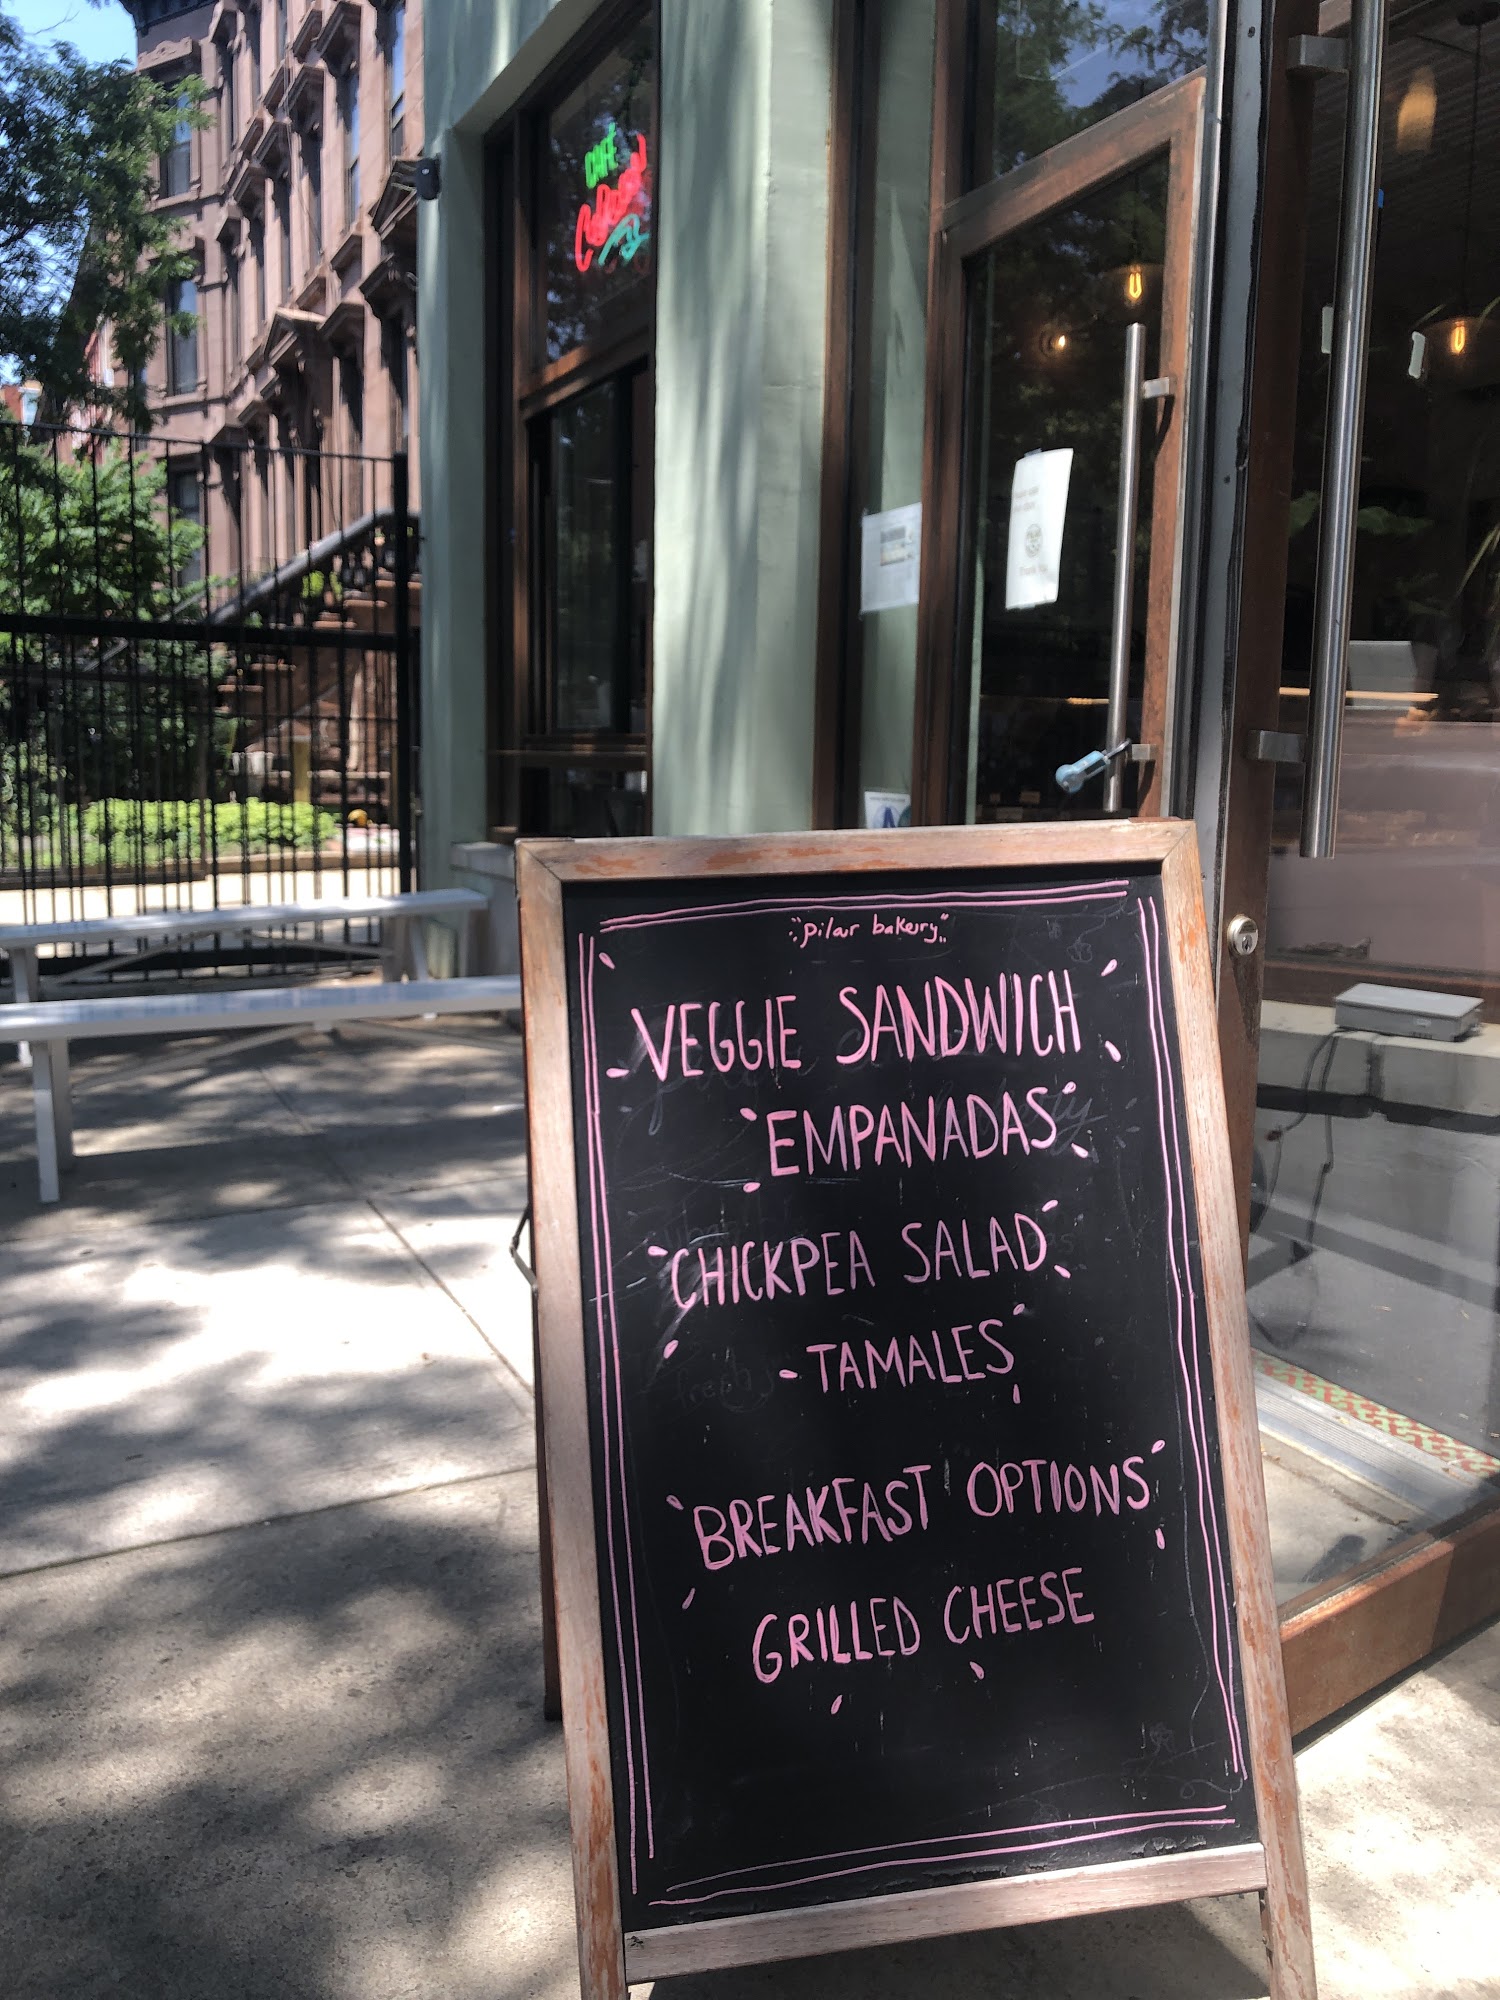 CAFÉ
"pilar bakery"
VEGGIE SANDWICH
EMPANADAS
CHICKPEA SALAD
TAMALES
BREAKFAST OPTIONS
GRILLED CHEESE